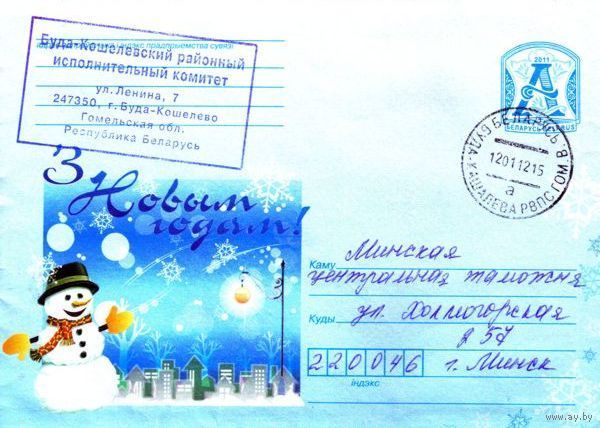 Буда-Кошелевский районный
исполнительный комитет
ул. Ленина, 7
247350, г. Буда-Кошелево
Гомельская обл.
Республика Беларусь
2011
А
БЕЛАРУСЬ BELARUS
БЕЛАРУСЬ
БУДА-КАШАЛЕВА РВПС ГОМ. В.
12011215
а
З Новым
годам!
Каму Минская
центральная таможня
Куды ул. Холмогорская
220046 г. Минск
індэкс
www.ay.by